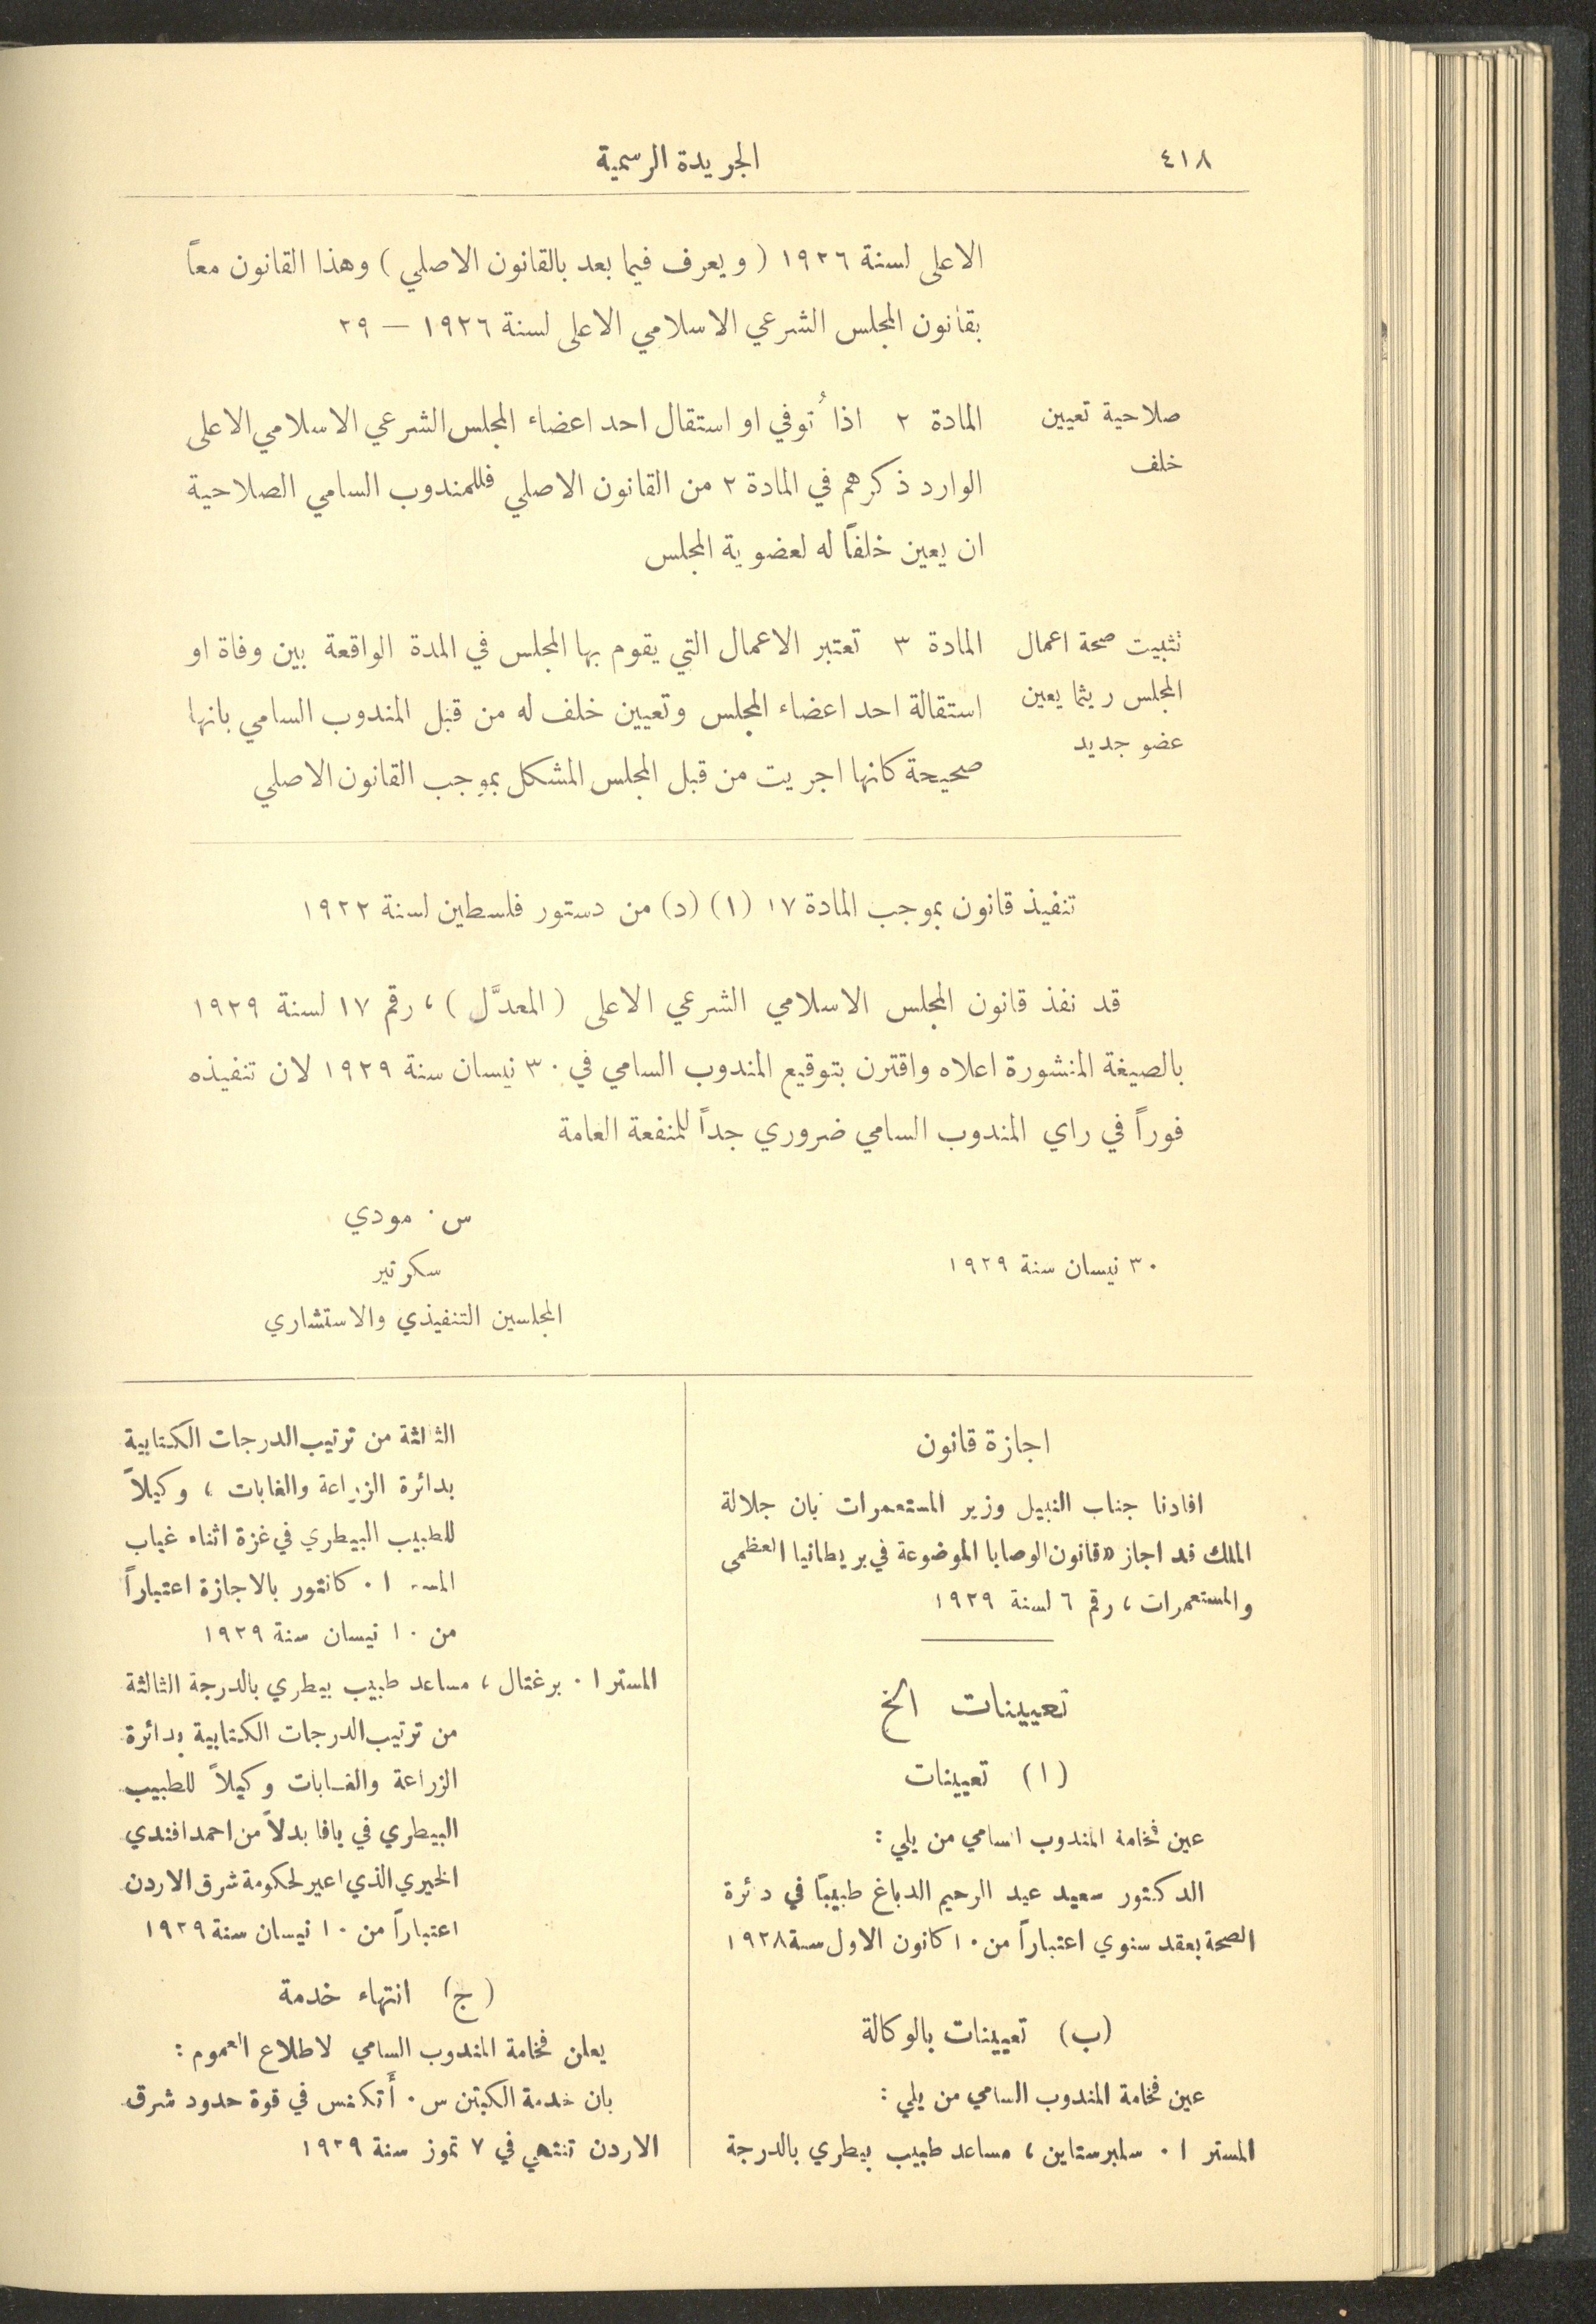 ٤١٨
الجريدة الرسمية
الاعلى لسنة ١٩٢٦ (ويعرف فيما بعد بالقانون الاصلي) وهذا القانون معاً
بقانون المجلس الشرعي الاسلامي الاعلى لسنة ١٩٢٦ — ٢٩
صلاحية تعيين
خلف
المادة ٢ اذا تُوفي او استقال احد اعضاء المجلس الشرعي الاسلامي الاعلى
الوارد ذكرهم في المادة ٢ من القانون الاصلي فللمندوب السامي الصلاحية
ان يعين خلفاً له لعضوية المجلس
تثبيت صحة اعمال
المجلس ريثما يعين
عضو جديد
المادة ٣ تعتبر الاعمال التي يقوم بها المجلس في المدة الواقعة بين وفاة او
استقالة احد اعضاء المجلس وتعيين خلف له من قبل المندوب السامي بانها
صحيحة كانها اجريت من قبل المجلس المشكل بموجب القانون الاصلي
تنفيذ قانون بموجب المادة ١٧ (١) (د) من دستور فلسطين لسنة ١٩٢٢
قد نفذ قانون المجلس الاسلامي الشرعي الاعلى (المعدَّل)، رقم ١٧ لسنة ١٩٢٩
بالصيغة المنشورة اعلاه واقترن بتوقيع المندوب السامي في ٣٠ نيسان سنة ١٩٢٩ لان تنفيذه
فوراً في راي المندوب السامي ضروري جداً للمنفعة العامة
س. مودي
سكرتير
المجلسين التنفيذي والاستشاري
٣٠ نيسان سنة ١٩٢٩
اجازة قانون
افادنا جناب النبيل وزير المستعمرات بان جلالة
الملك قد اجاز «قانون الوصايا الموضوعة في بريطانيا العظمى
والمستعمرات، رقم ٦ لسنة ١٩٢٩
تعيينات الخ
(ا) تعيينات
عين فخامة المندوب السامي من يلي:
الدكتور سعيد عبد الرحيم الدباغ طبيباً في دائرة
الصحة بعقد سنوي اعتباراً من ١٠ كانون الاول سنة ١٩٢٨
(ب) تعيينات بالوكالة
عين فخامة المندوب السامي من يلي:
المستر ا. سلبرستاين، مساعد طبيب بيطري بالدرجة
الثالثة من ترتيب الدرجات الكتابية
بدائرة الزراعة والغابات، وكيلاً
للطبيب البيطري في غزة اثناء غياب
المستر ا. كانتور بالاجازة اعتباراً
من ١٠ نيسان سنة ١٩٢٩
المستر ا. برغتال، مساعد طبيب بيطري بالدرجة الثالثة
من ترتيب الدرجات الكتابية بدائرة
الزراعة والغابات وكيلاً للطبيب
البيطري في يافا بدلاً من احمد افندي
الخيري الذي اعير لحكومة شرق الاردن
اعتباراً من ١٠ نيسان سنة ١٩٢٩
(ج) انتهاء خدمة
يعلن فخامة المندوب السامي لاطلاع العموم:
بان خدمة الكبتن س. أتكنس في قوة حدود شرق
الاردن تنتهي في ٧ تموز سنة ١٩٢٩